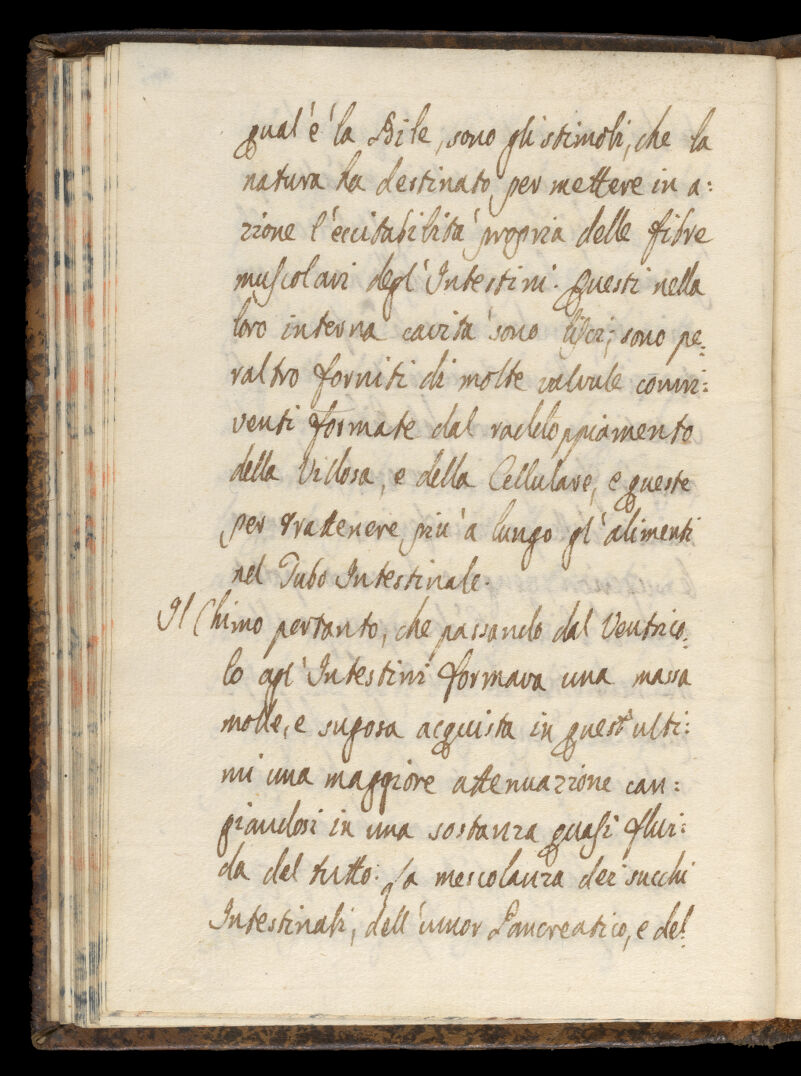 qual'è la Bile, sono gli stimoli, che la
natura ha destinato per mettere in a:
zione l'eccitabilità propria delle fibre
muscolari degl'Intestini. Questi nella
loro interna cavità sono lisci; sono pe:
raltro forniti di molte valvule conni:
venti formate dal raddoppiamento
della Villosa, e della Cellulare, e queste
per trattenere più a lungo gl'alimenti
nel Tubo Intestinale.
Il Chimo pertanto, che passando dal Ventrico:
lo agl'Intestini formava una massa
molle, e sugosa acquista in quest'ulti:
mi una maggiore attenuazione can:
giandosi in una sostanza quasi flui:
da del tutto. La mescolanza dei succhi
Intestinali, dell'umor Pancreatico, e del: